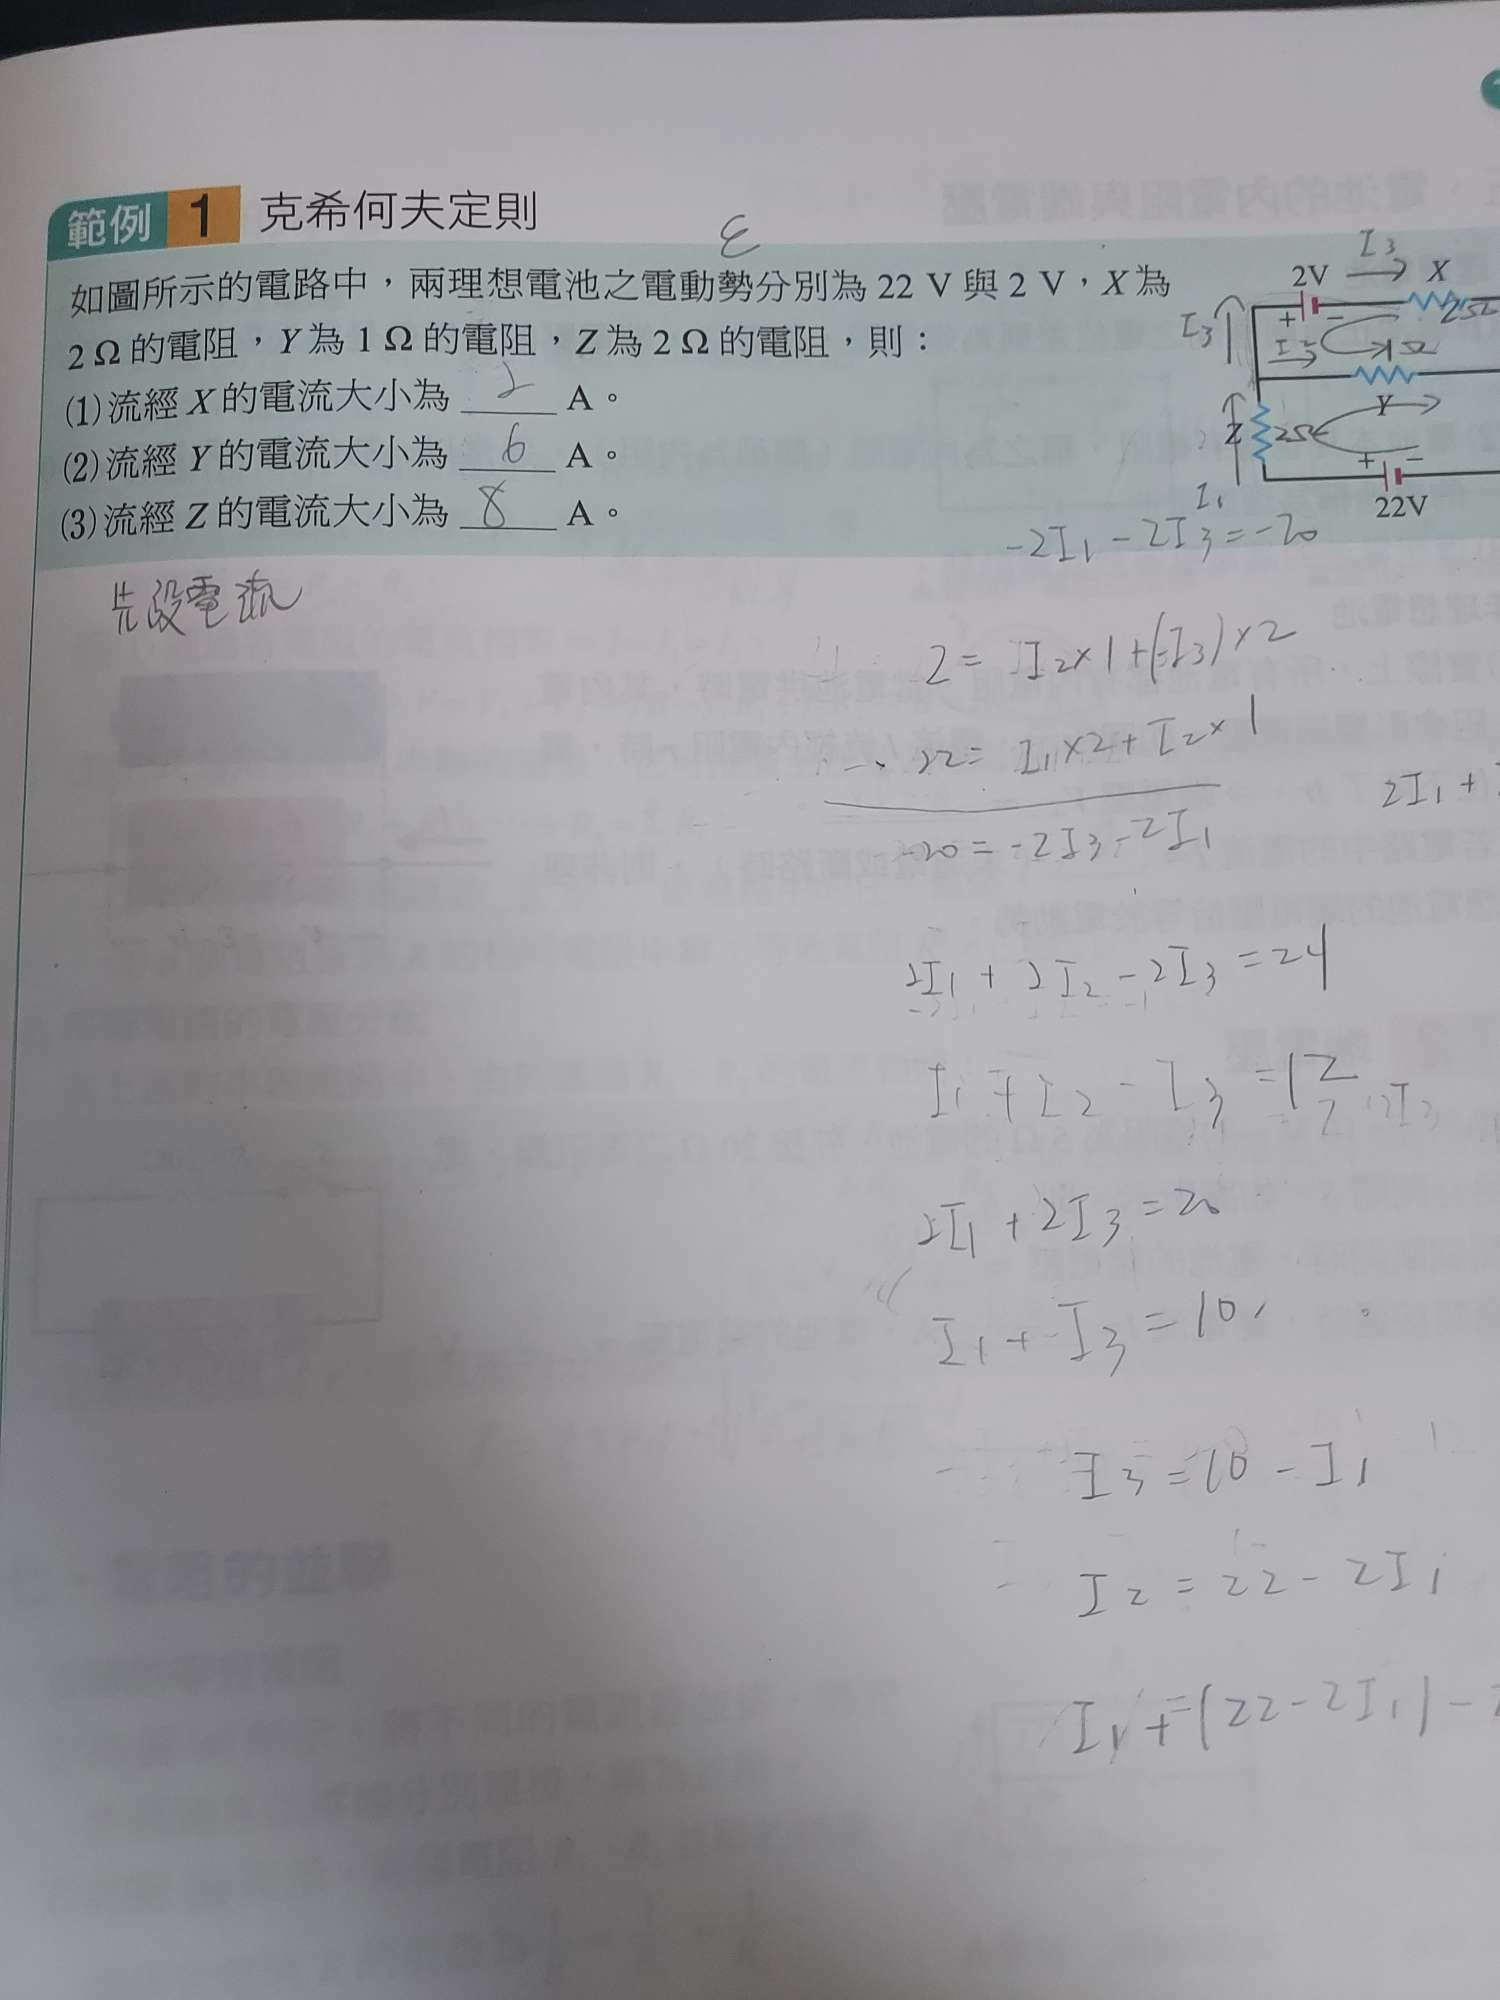 範例 1 克希何夫定則
ε
如圖所示的電路中，兩理想電池之電動勢分別為 22 V 與 2 V，X 為
2 Ω 的電阻，Y 為 1 Ω 的電阻，Z 為 2 Ω 的電阻，則：
(1)流經 X 的電流大小為 2 A。
(2)流經 Y 的電流大小為 6 A。
(3)流經 Z 的電流大小為 8 A。
I3
2V X
I3 + − 2Ω
I2 1Ω
Y
Z 2Ω
+ −
I1 22V
-2I1 - 2I3 = -20
先設電流
2 = I2×1+(-I3)×2
22 = I1×2 + I2×1
2I1 +
-20 = -2I3 - 2I1
2I1 + 2I2 - 2I3 = 24
I1 + I2 - I3 = 12
2I1 + 2I3 = 20
I1 + I3 = 10
I3 = 10 - I1
I2 = 22 - 2I1
I1 + (22 - 2I1) -